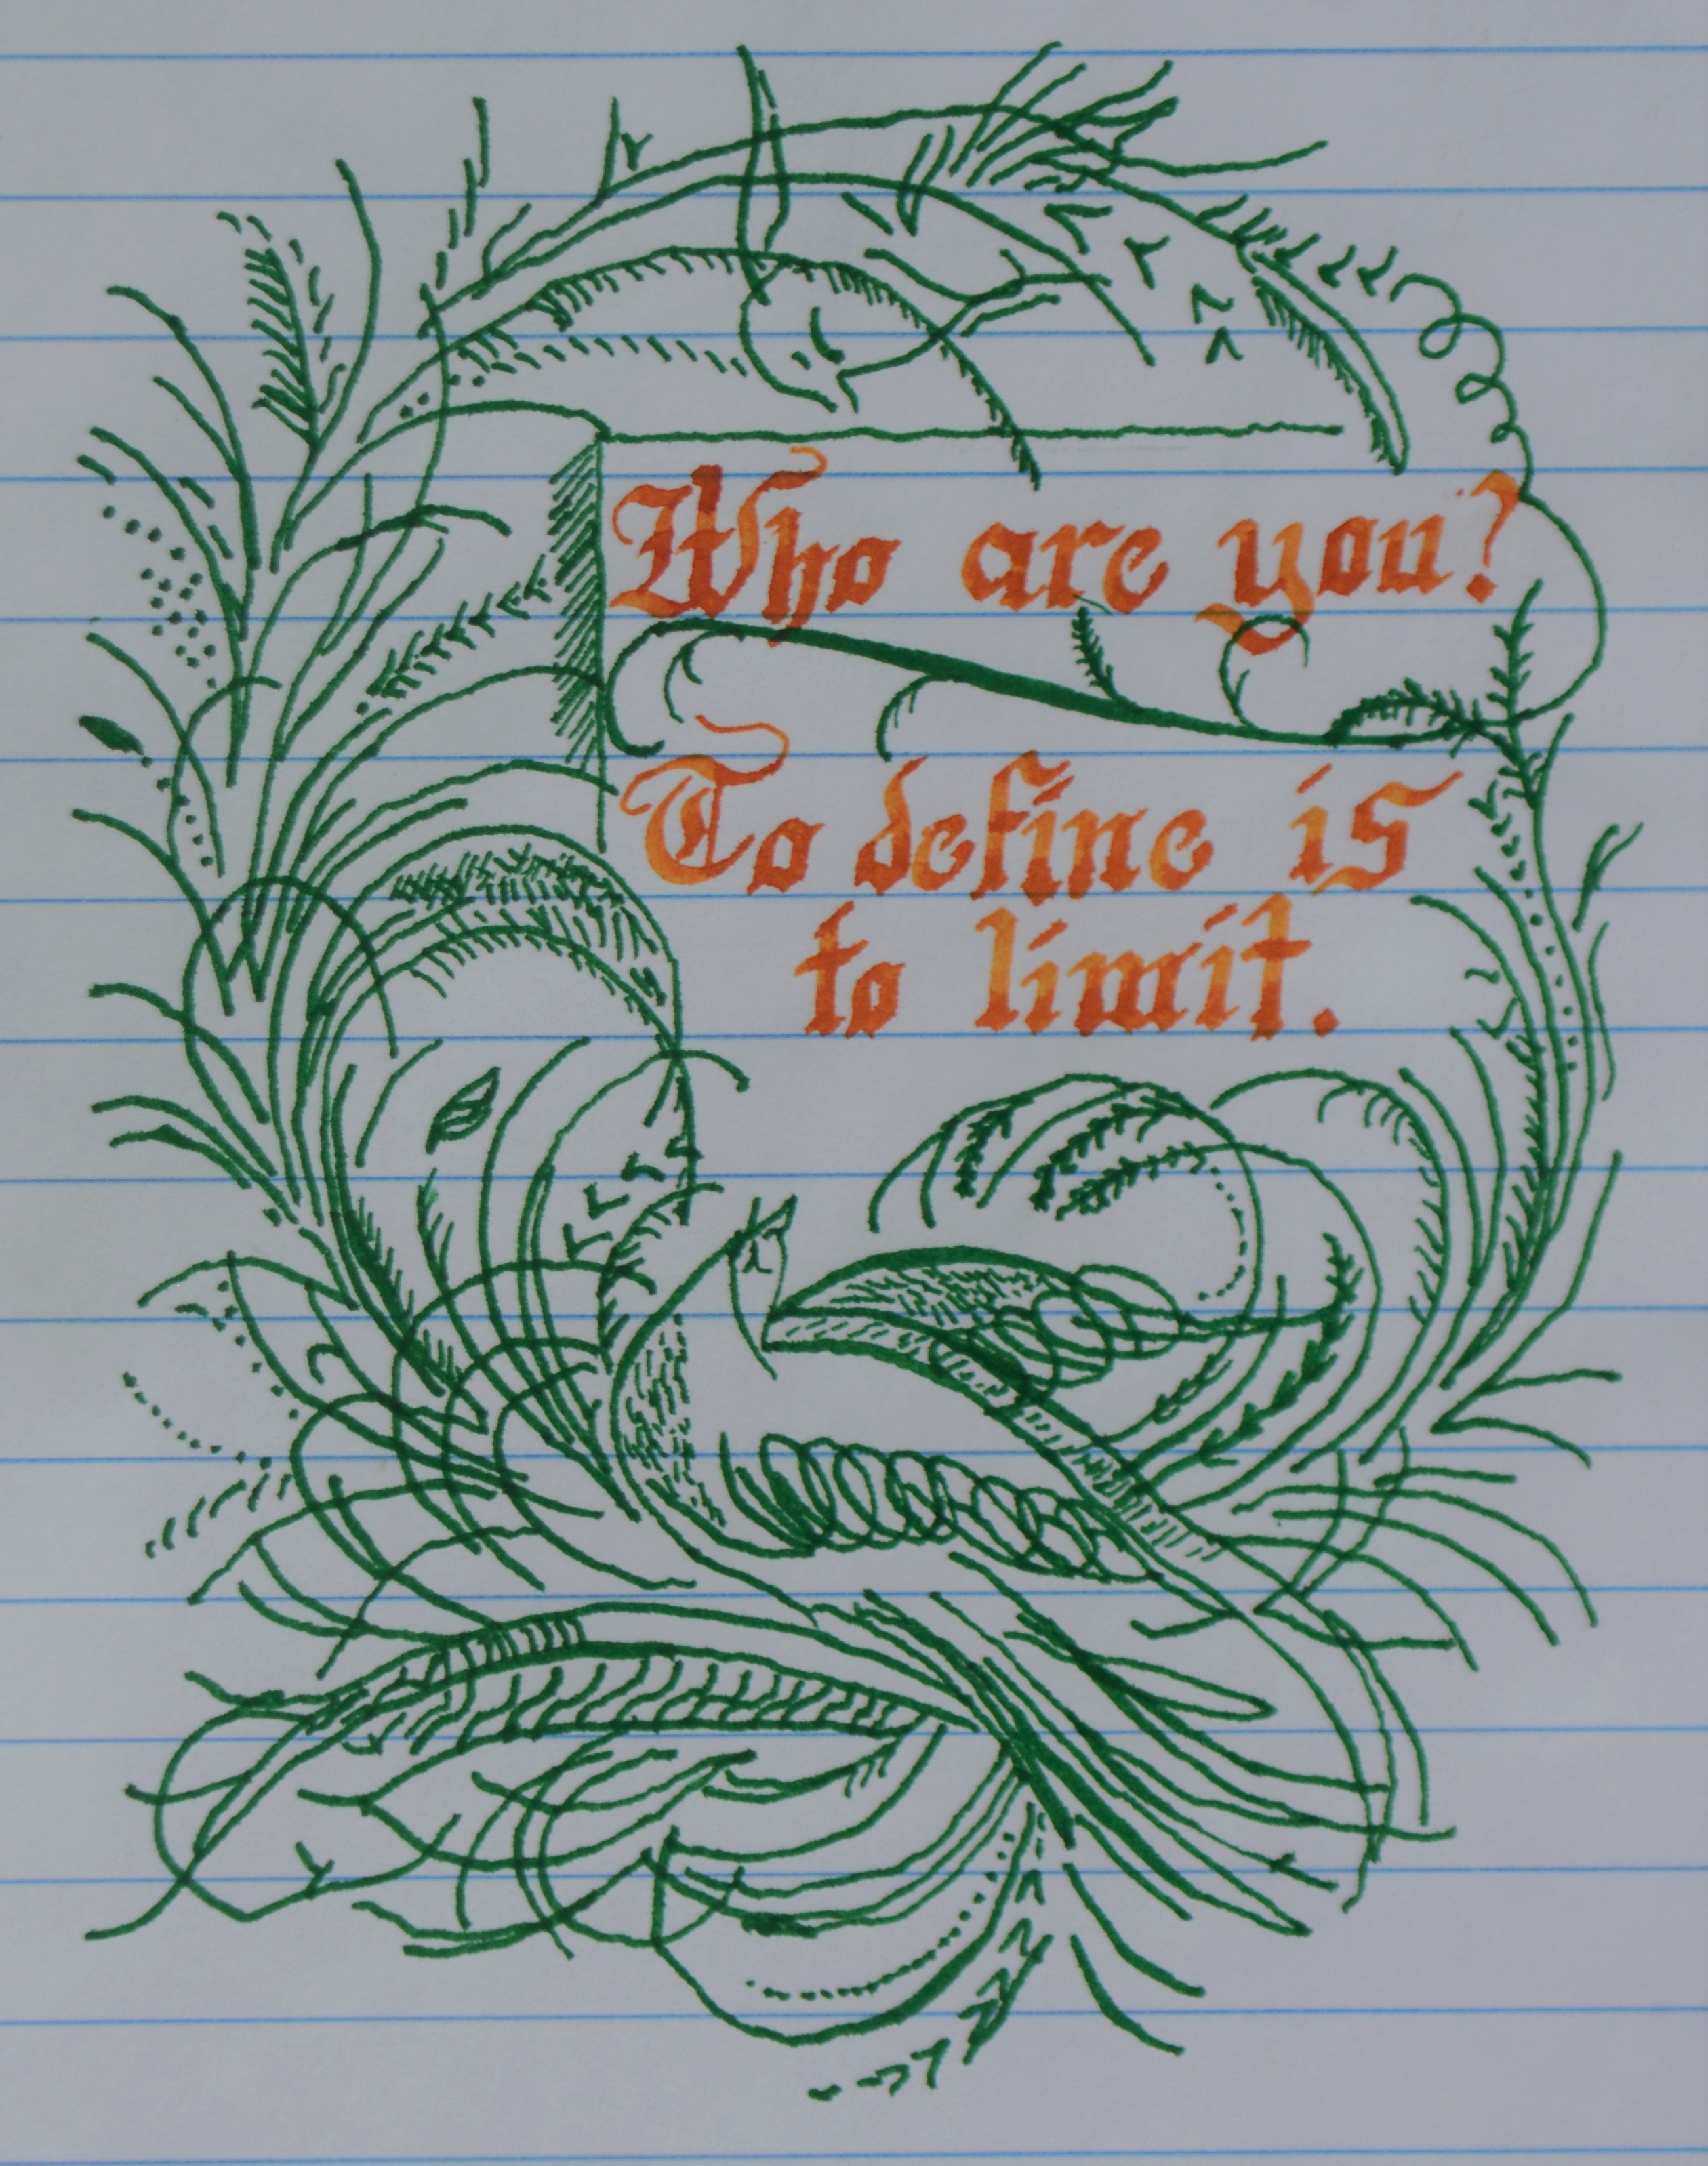 Who are you?
To define is
to limit.